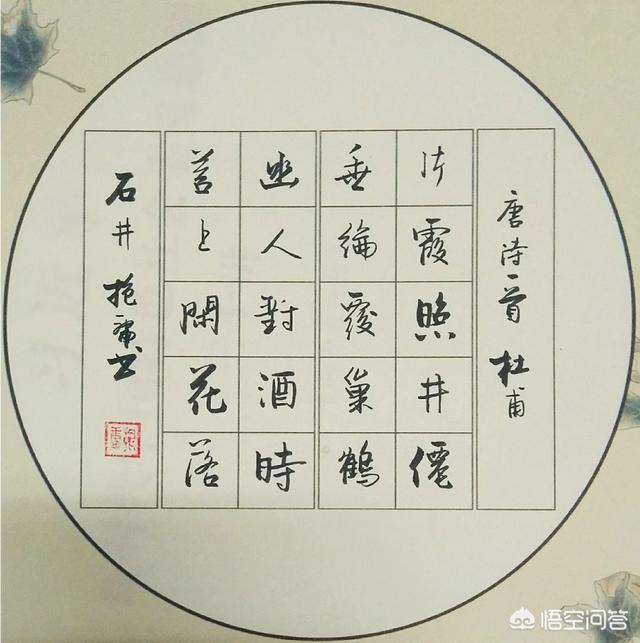 唐诗一首 杜甫
片霞照井僊
垂綸覆巢鶴
幽人對酒時
苔上閑花落
石井 书
悟空问答